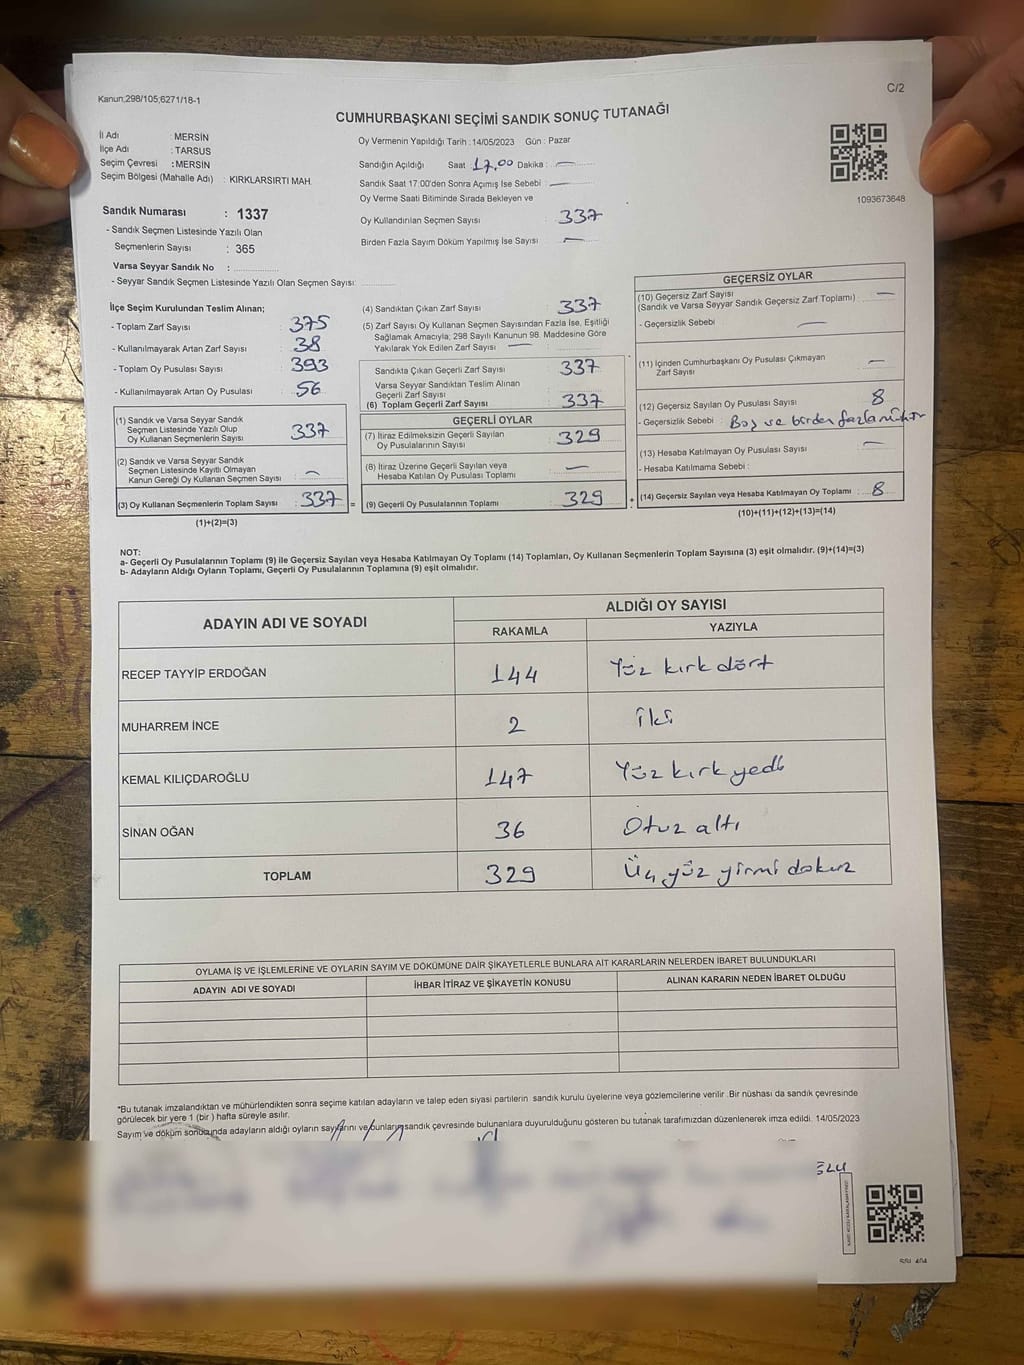 Kanun;298/105;6271/18-1
C/2
CUMHURBAŞKANI SEÇİMİ SANDIK SONUÇ TUTANAĞI
İl Adı : MERSİN
İlçe Adı : TARSUS
Seçim Çevresi : MERSİN
Seçim Bölgesi (Mahalle Adı) : KIRKLARSIRTI MAH.
Sandık Numarası : 1337
- Sandık Seçmen Listesinde Yazılı Olan
Seçmenlerin Sayısı : 365
Varsa Seyyar Sandık No :
- Seyyar Sandık Seçmen Listesinde Yazılı Olan Seçmen Sayısı:
Oy Vermenin Yapıldığı Tarih : 14/05/2023 Gün : Pazar
Sandığın Açıldığı Saat 17.00 Dakika : —
Sandık Saat 17:00'den Sonra Açımış İse Sebebi : —
Oy Verme Saati Bitiminde Sırada Bekleyen ve
Oy Kullandırılan Seçmen Sayısı : 337
Birden Fazla Sayım Döküm Yapılmış İse Sayısı : —
1093673648
İlçe Seçim Kurulundan Teslim Alınan;
- Toplam Zarf Sayısı : 375
- Kullanılmayarak Artan Zarf Sayısı : 38
- Toplam Oy Pusulası Sayısı : 393
- Kullanılmayarak Artan Oy Pusulası : 56
(1) Sandık ve Varsa Seyyar Sandık
Seçmen Listesinde Yazılı Olup
Oy Kullanan Seçmenlerin Sayısı : 337
(2) Sandık ve Varsa Seyyar Sandık
Seçmen Listesinde Kayıtlı Olmayan
Kanun Gereği Oy Kullanan Seçmen Sayısı : —
(3) Oy Kullanan Seçmenlerin Toplam Sayısı : 337 =
(1)+(2)=(3)
(4) Sandıktan Çıkan Zarf Sayısı : 337
(5) Zarf Sayısı Oy Kullanan Seçmen Sayısından Fazla İse, Eşitliği
Sağlamak Amacıyla, 298 Sayılı Kanunun 98. Maddesine Göre
Yakılarak Yok Edilen Zarf Sayısı : —
Sandıkta Çıkan Geçerli Zarf Sayısı : 337
Varsa Seyyar Sandıktan Teslim Alınan
Geçerli Zarf Sayısı :
(6) Toplam Geçerli Zarf Sayısı : 337
GEÇERLİ OYLAR
(7) İtiraz Edilmeksizin Geçerli Sayılan
Oy Pusulalarının Sayısı : 329
(8) İtiraz Üzerine Geçerli Sayılan veya
Hesaba Katılan Oy Pusulası Toplamı : —
(9) Geçerli Oy Pusulalarının Toplamı : 329
GEÇERSİZ OYLAR
(10) Geçersiz Zarf Sayısı
(Sandık ve Varsa Seyyar Sandık Geçersiz Zarf Toplamı) : —
- Geçersizlik Sebebi : —
(11) İçinden Cumhurbaşkanı Oy Pusulası Çıkmayan
Zarf Sayısı : —
(12) Geçersiz Sayılan Oy Pusulası Sayısı : 8
- Geçersizlik Sebebi : Boş ve birden fazla mühür
(13) Hesaba Katılmayan Oy Pusulası Sayısı : —
- Hesaba Katılmama Sebebi :
(14) Geçersiz Sayılan veya Hesaba Katılmayan Oy Toplamı : 8
(10)+(11)+(12)+(13)=(14)
NOT:
a- Geçerli Oy Pusulalarının Toplamı (9) ile Geçersiz Sayılan veya Hesaba Katılmayan Oy Toplamı (14) Toplamları, Oy Kullanan Seçmenlerin Toplam Sayısına (3) eşit olmalıdır. (9)+(14)=(3)
b- Adayların Aldığı Oyların Toplamı, Geçerli Oy Pusulalarının Toplamına (9) eşit olmalıdır.
ADAYIN ADI VE SOYADI
ALDIĞI OY SAYISI
RAKAMLA YAZIYLA
RECEP TAYYİP ERDOĞAN 144 Yüz kırk dört
MUHARREM İNCE 2 İki
KEMAL KILIÇDAROĞLU 147 Yüz kırk yedi
SİNAN OĞAN 36 Otuz altı
TOPLAM 329 Üç yüz yirmi dokuz
OYLAMA İŞ VE İŞLEMLERİNE VE OYLARIN SAYIM VE DÖKÜMÜNE DAİR ŞİKAYETLERLE BUNLARA AİT KARARLARIN NELERDEN İBARET BULUNDUKLARI
ADAYIN ADI VE SOYADI İHBAR İTİRAZ VE ŞİKAYETİN KONUSU ALINAN KARARIN NEDEN İBARET OLDUĞU
*Bu tutanak imzalandıktan ve mühürlendikten sonra seçime katılan adayların ve talep eden siyasi partilerin sandık kurulu üyelerine veya gözlemcilerine verilir .Bir nüshası da sandık çevresinde
görülecek bir yere 1 (bir ) hafta süreyle asılır.
Sayım ve döküm sonucunda adayların aldığı oyların sayılarını ve bunların sandık çevresinde bulunanlara duyurulduğunu gösteren bu tutanak tarafımızdan düzenlenerek imza edildi. 14/05/2023